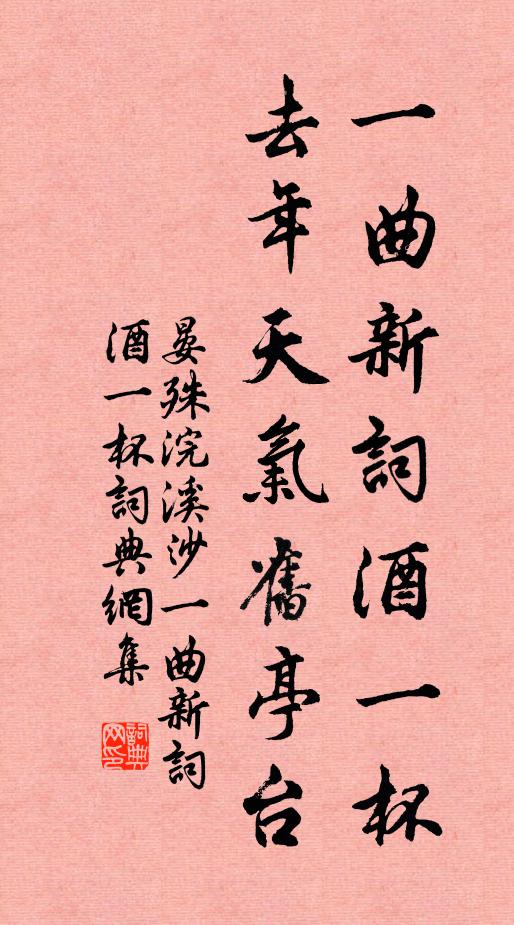 一曲新詞酒一杯
去年天氣舊亭台
晏殊浣溪沙一曲新詞
酒一杯詞典網集
詞典網印